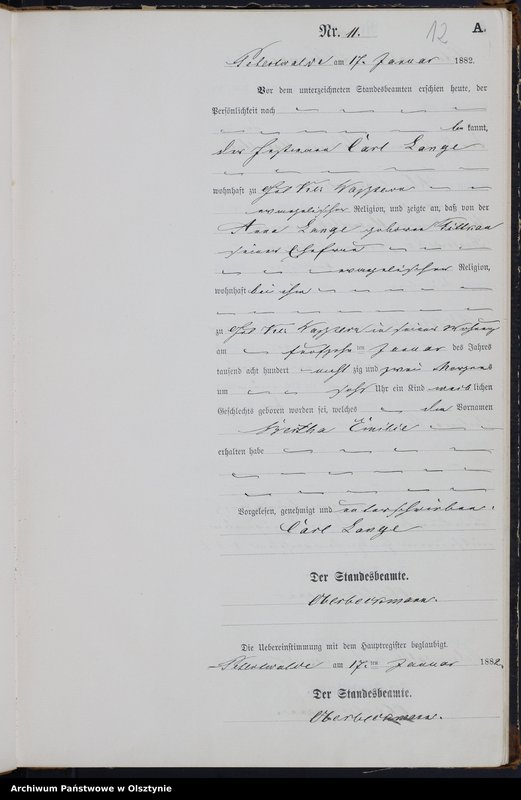 Nr. 11.
12
A.
Peterswalde am 17. Januar 1882.
Vor dem unterzeichneten Standesbeamten erschien heute, der
Persönlichkeit nach
be kannt,
der Carl Lange
wohnhaft zu Gut
evangelischer Religion, und zeigte an, daß von der
Anna Lange geborene
seiner Ehefrau
evangelischer Religion,
wohnhaft bei ihm
zu Gut in seiner Wohnung
am ten Januar des Jahres
tausend acht hundert acht zig und zwei Morgens
um Uhr ein Kind weib lichen
Geschlechts geboren worden sei, welches den Vornamen
Bertha Emilie
erhalten habe
Vorgelesen, genehmigt und unterschrieben.
Carl Lange
Der Standesbeamte.
Oberbeckmann.
Die Uebereinstimmung mit dem Hauptregister beglaubigt.
Peterswalde am 17. ten Januar 1882.
Der Standesbeamte.
Oberbeckmann.
Archiwum Państwowe w Olsztynie